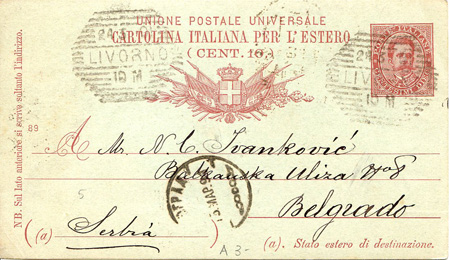 UNIONE POSTALE UNIVERSALE
CARTOLINA ITALIANA PER L'ESTERO
(CENT. 10.)
LIVORNO
10 M
LIVORNO
10 M
NB. Sul lato anteriore si scrive soltanto l'indirizzo.
89
A Mr. N. C. Ivanković
Balkanska Uliza No 8
Belgrado
5
(a) Serbia
A 3-
(a). Stato estero di destinazione.